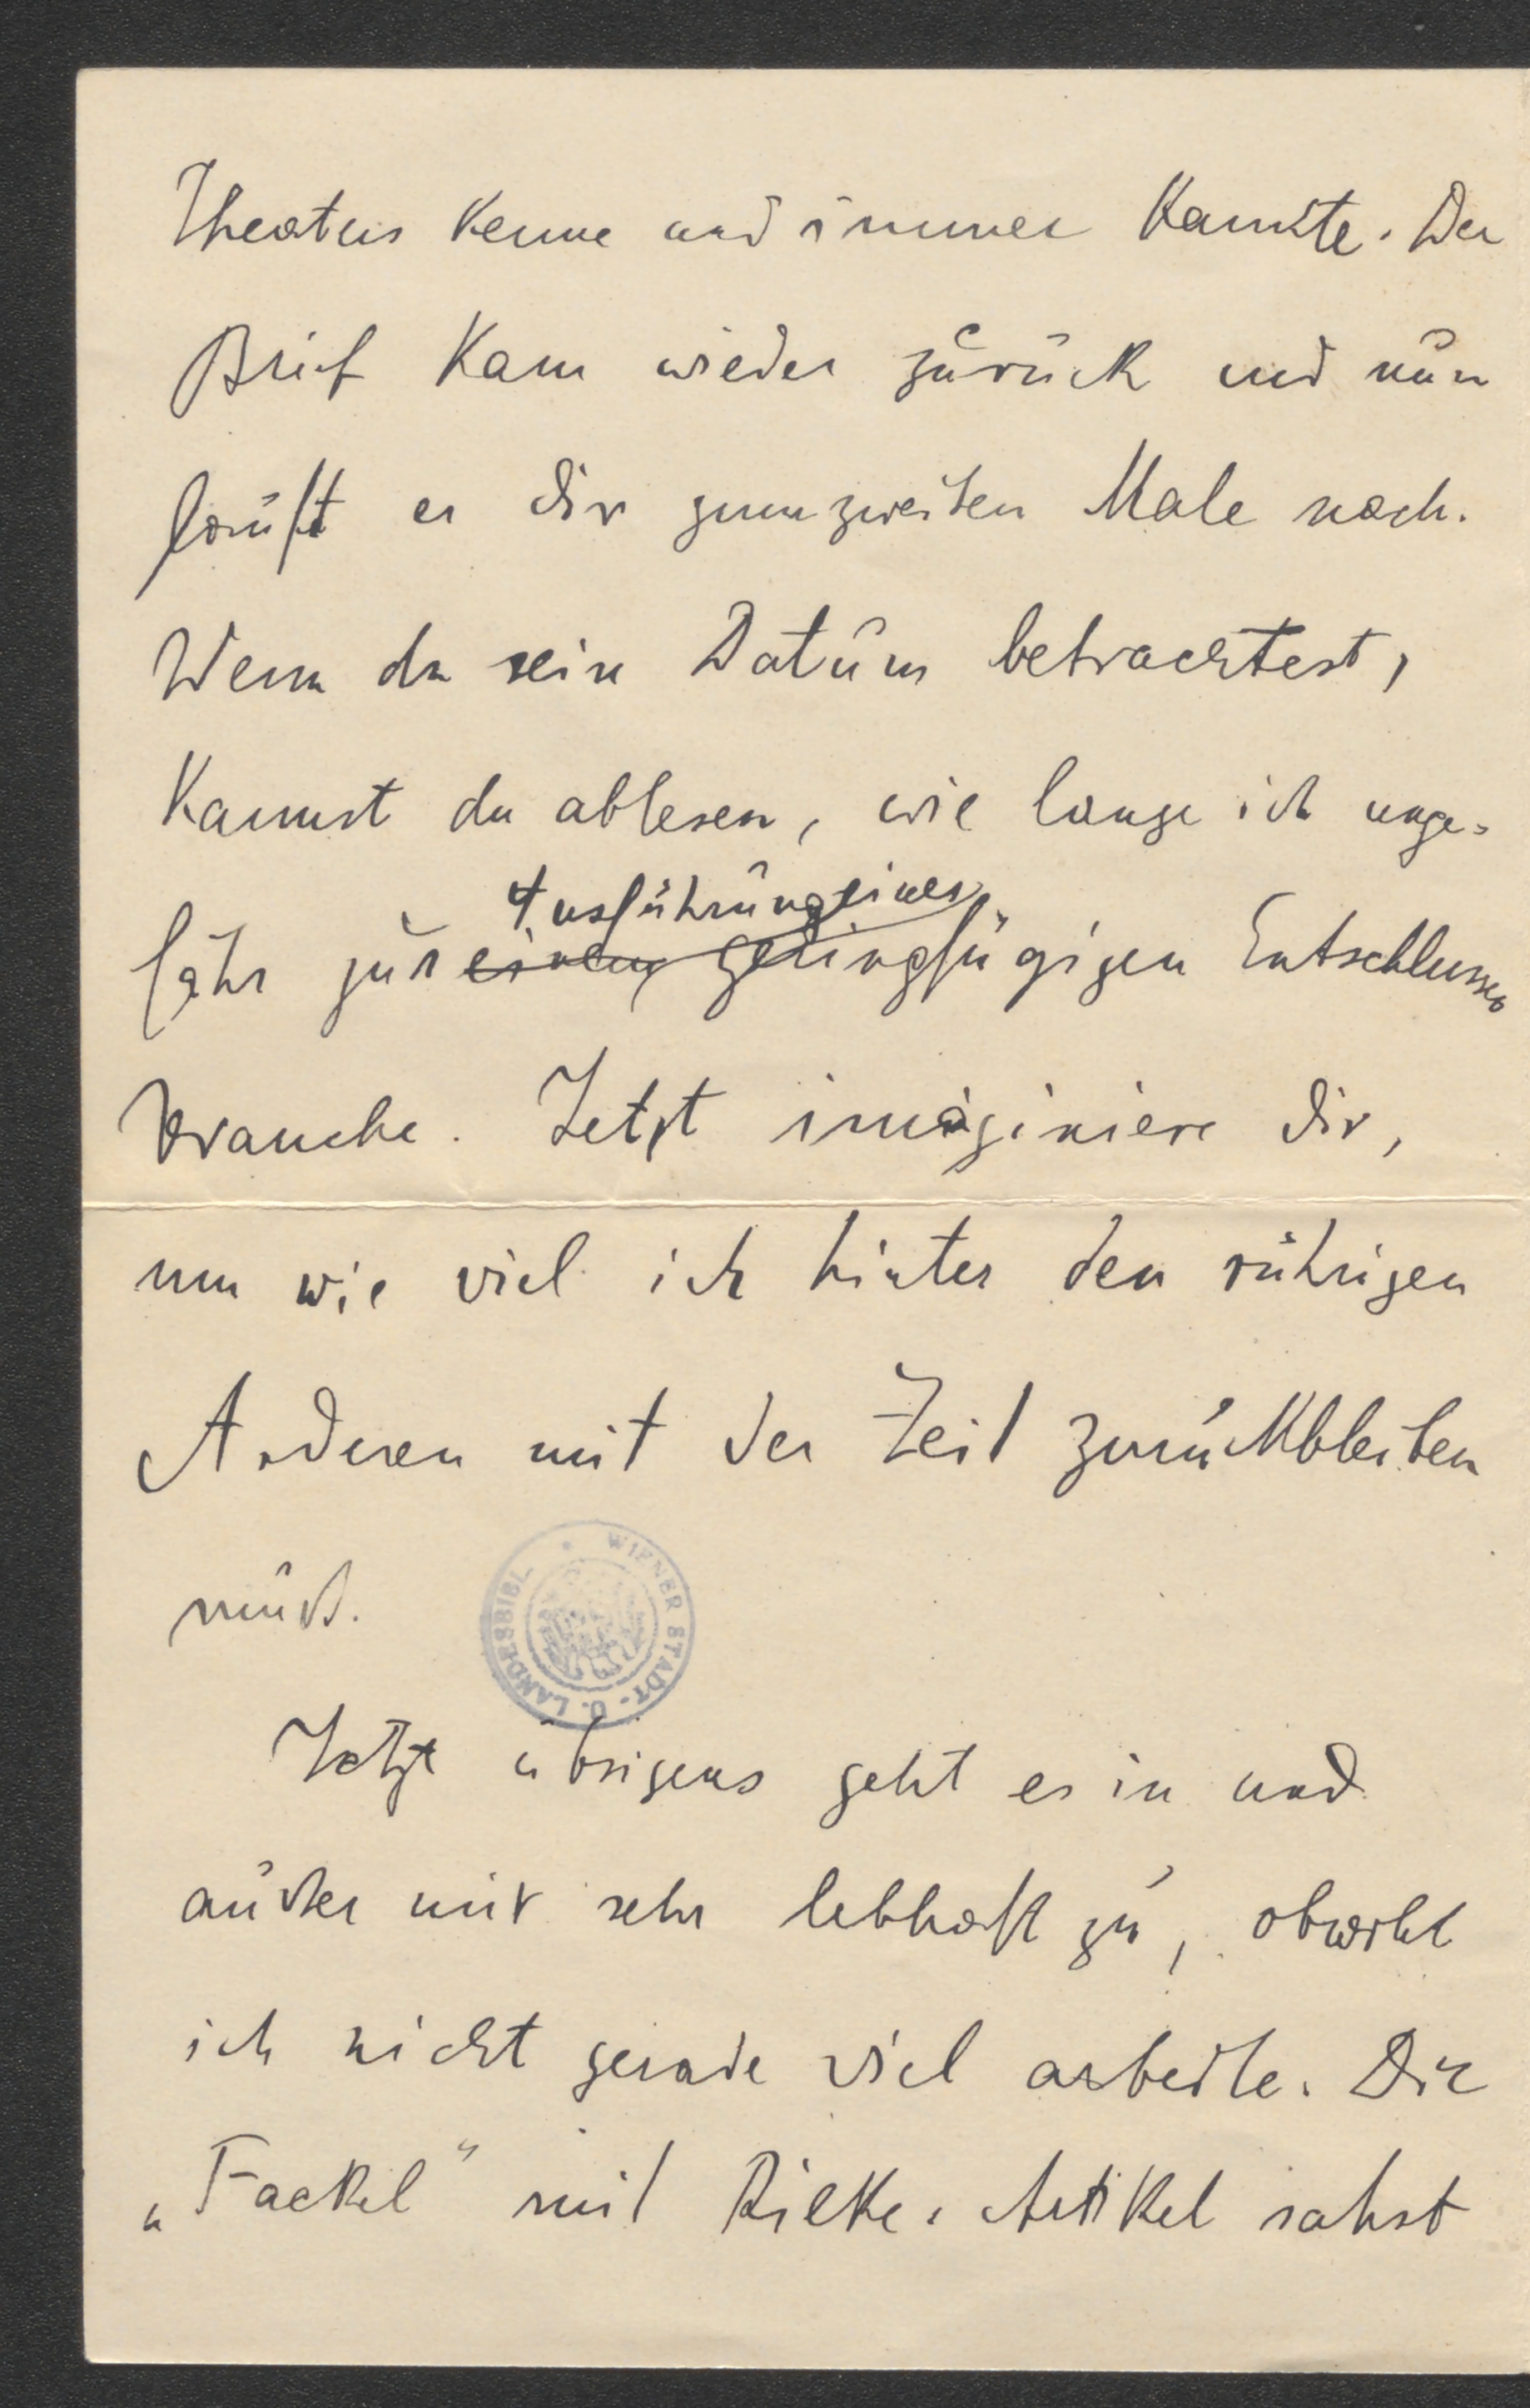 Theaters kenne und immer kannte. Der
Brief kam wieder zurück und nun
läuft er dir zum zweiten Male nach.
Wenn du sein Datum betrachtest,
kannst du ablesen, wie lange ich unge-
Ausführung eines
fähr zur einem geringfügigen Entschlusses
brauche. Jetzt imaginiere dir,
um wie viel ich hinter den rührigen
Anderen mit der Zeit zurückbleiben
muß.
WIENER STADT- U. LANDESBIBL.
Jetzt übrigens geht es in und
außer mir sehr lebhaft zu, obwohl
ich nicht gerade viel arbeite. Die
„Fackel“ mit Rilke-Artikel sahst